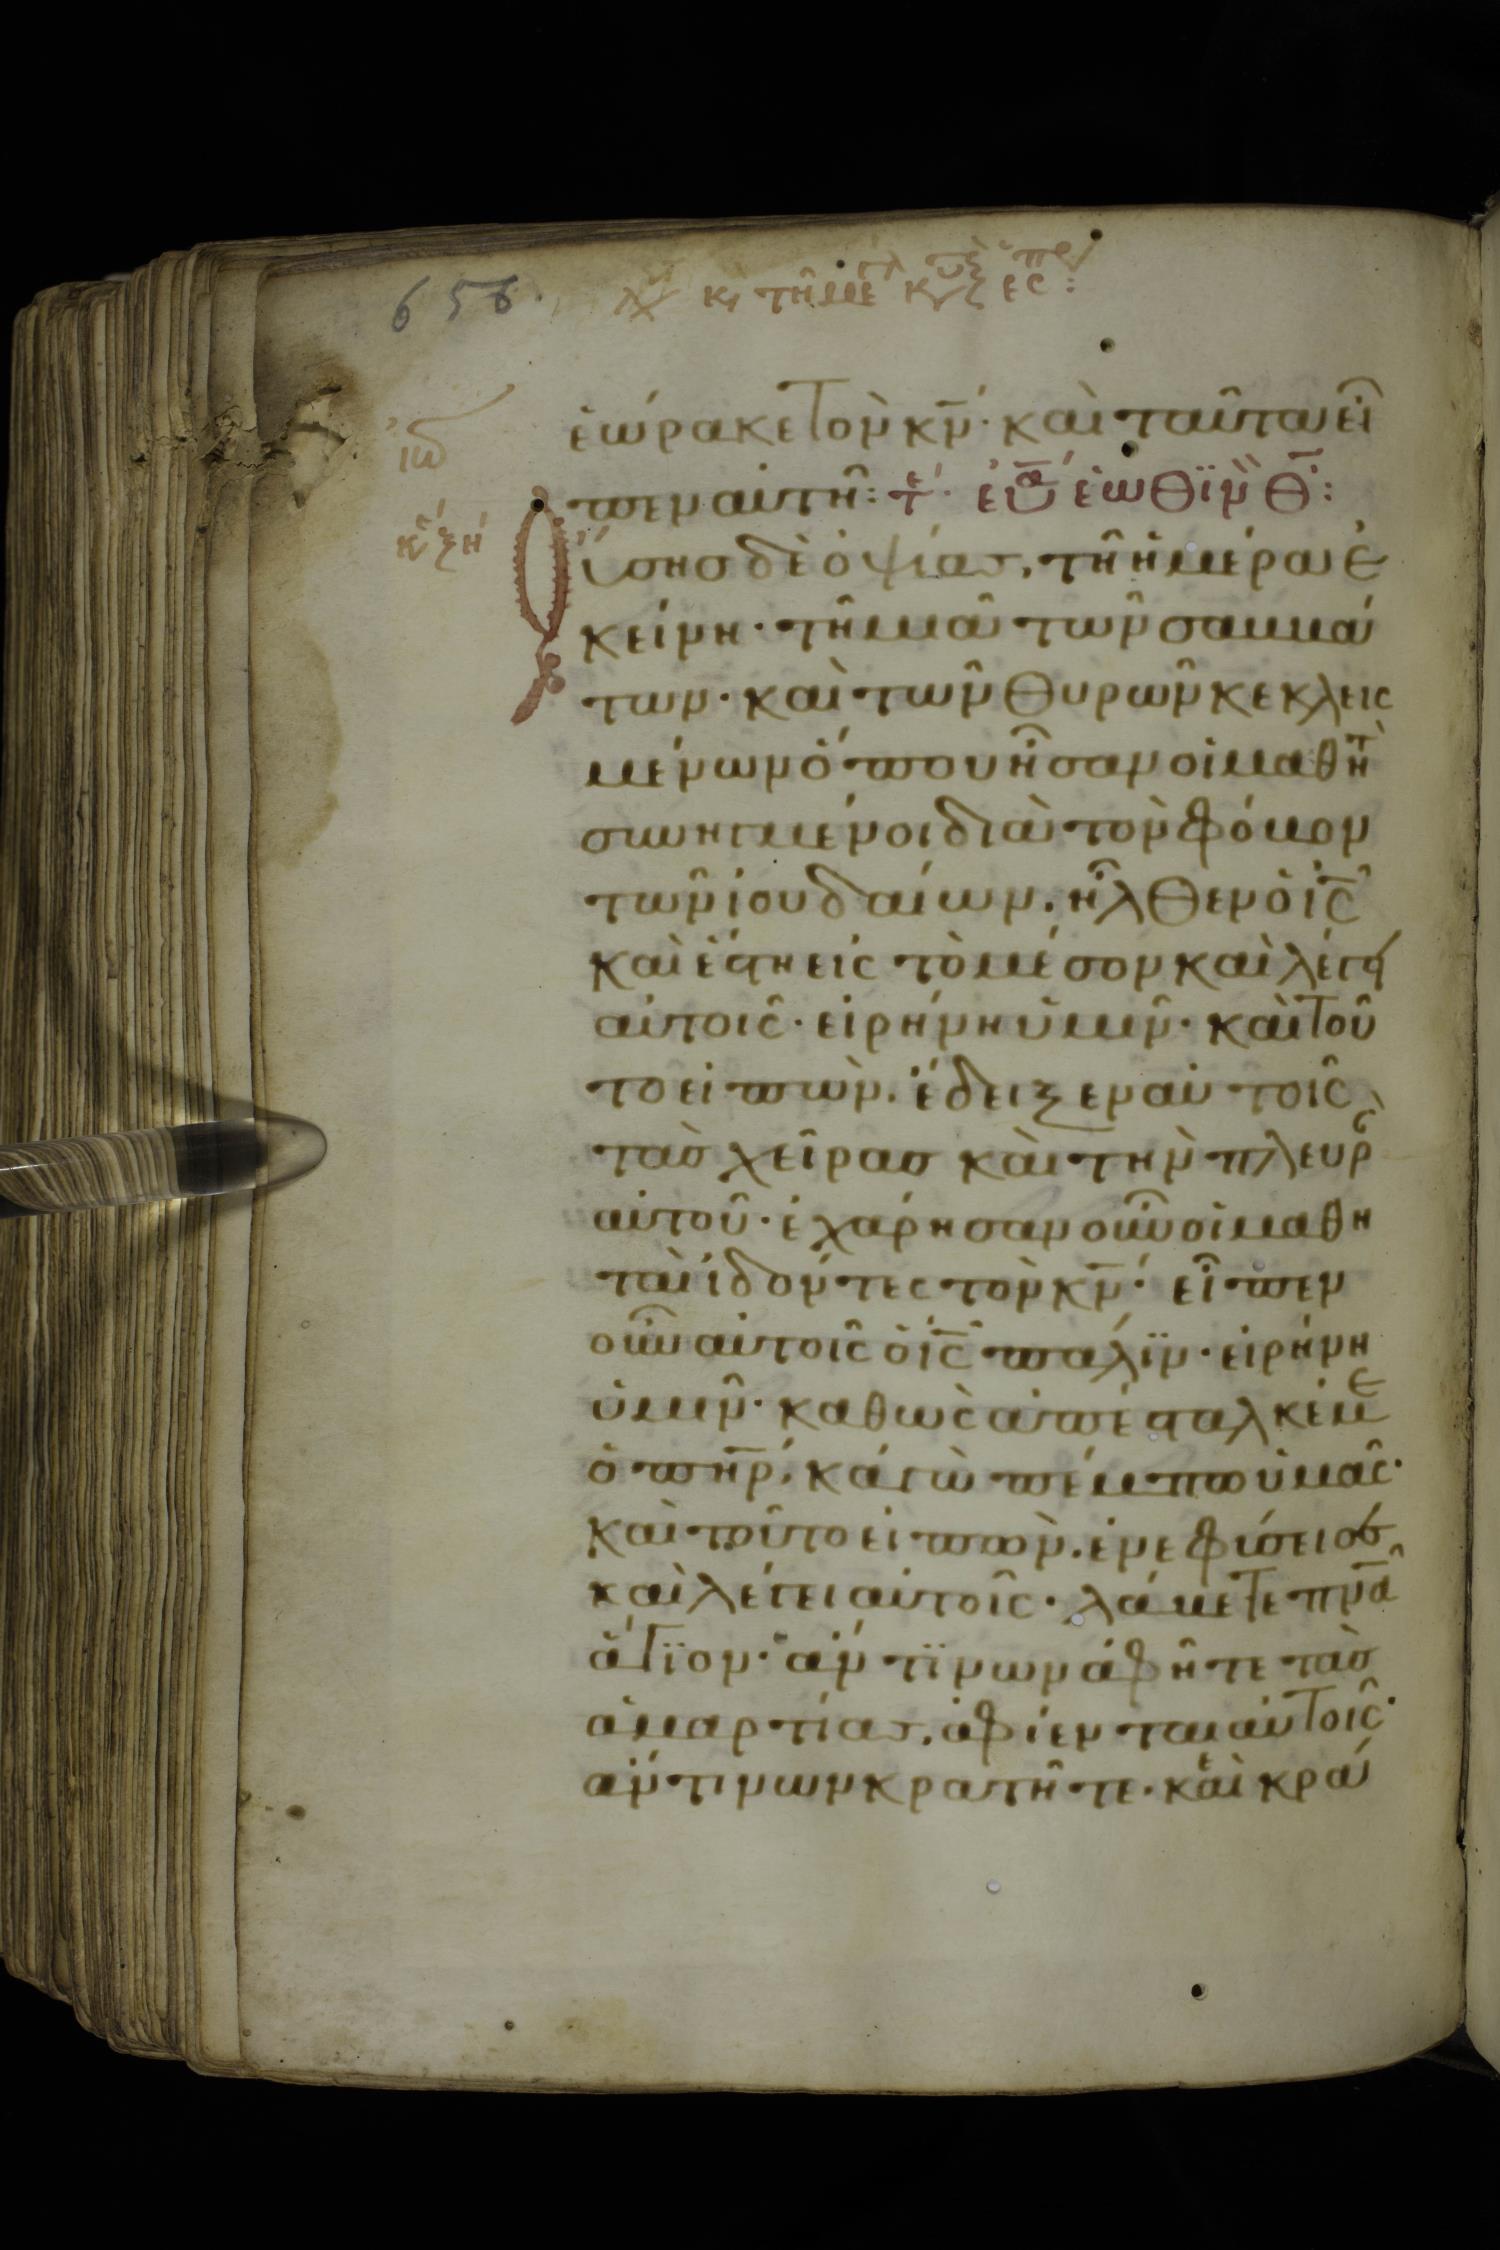 656.
ἑώρακε τὸν κν̄· καὶ ταῦτα εἶ
πεν αὐτῆ: τέ· εὐα ἑωθϊν θ̄:
Οὔσης δὲ ὀψίας, τῆ ἡμέρα ἐ
κείνη· τῆ μιᾶ τῶν σαββά
των· καὶ τῶν θυρῶν κεκλεις
μένων ὅπου ἦσαν οἱ μαθητ
συνηγμένοι διὰ τὸν φόβον
τῶν ἰουδαίων, ἦλθεν ὁ ις̄
καὶ ἔστη εἰς τὸ μέσον καὶ λέγει
αὐτοῖς· εἰρήνη ὑμῖν· καὶ τοῦ
το εἰπὼν, ἔδειξεν αὐτοῖς
τὰς χεῖρας καὶ τὴν πλευρ
αὐτοῦ· ἐχάρησαν οὖν οἱ μαθη
ταὶ ἰδόντες τὸν κν̄· εἶπεν
οὖν αὐτοῖς ὁ ις̄ πάλϊν· εἰρήνη
ὑμῖν· καθὼς ἀπέσταλκέ με
ὁ πηρ̄, κάγὼ πέμπω ὑμᾶς·
καὶ τοῦτο εἰπὼν, ἐνεφύσεισε
καὶ λέγει αὐτοῖς· λάβετε πνᾱ
ἅγϊον· ἄν τϊνων ἀφῆτε τὰς
ἁμαρτίας, ἀφίενται αὐτοῖς·
ἄν τινων κρατῆτε· κεκρά